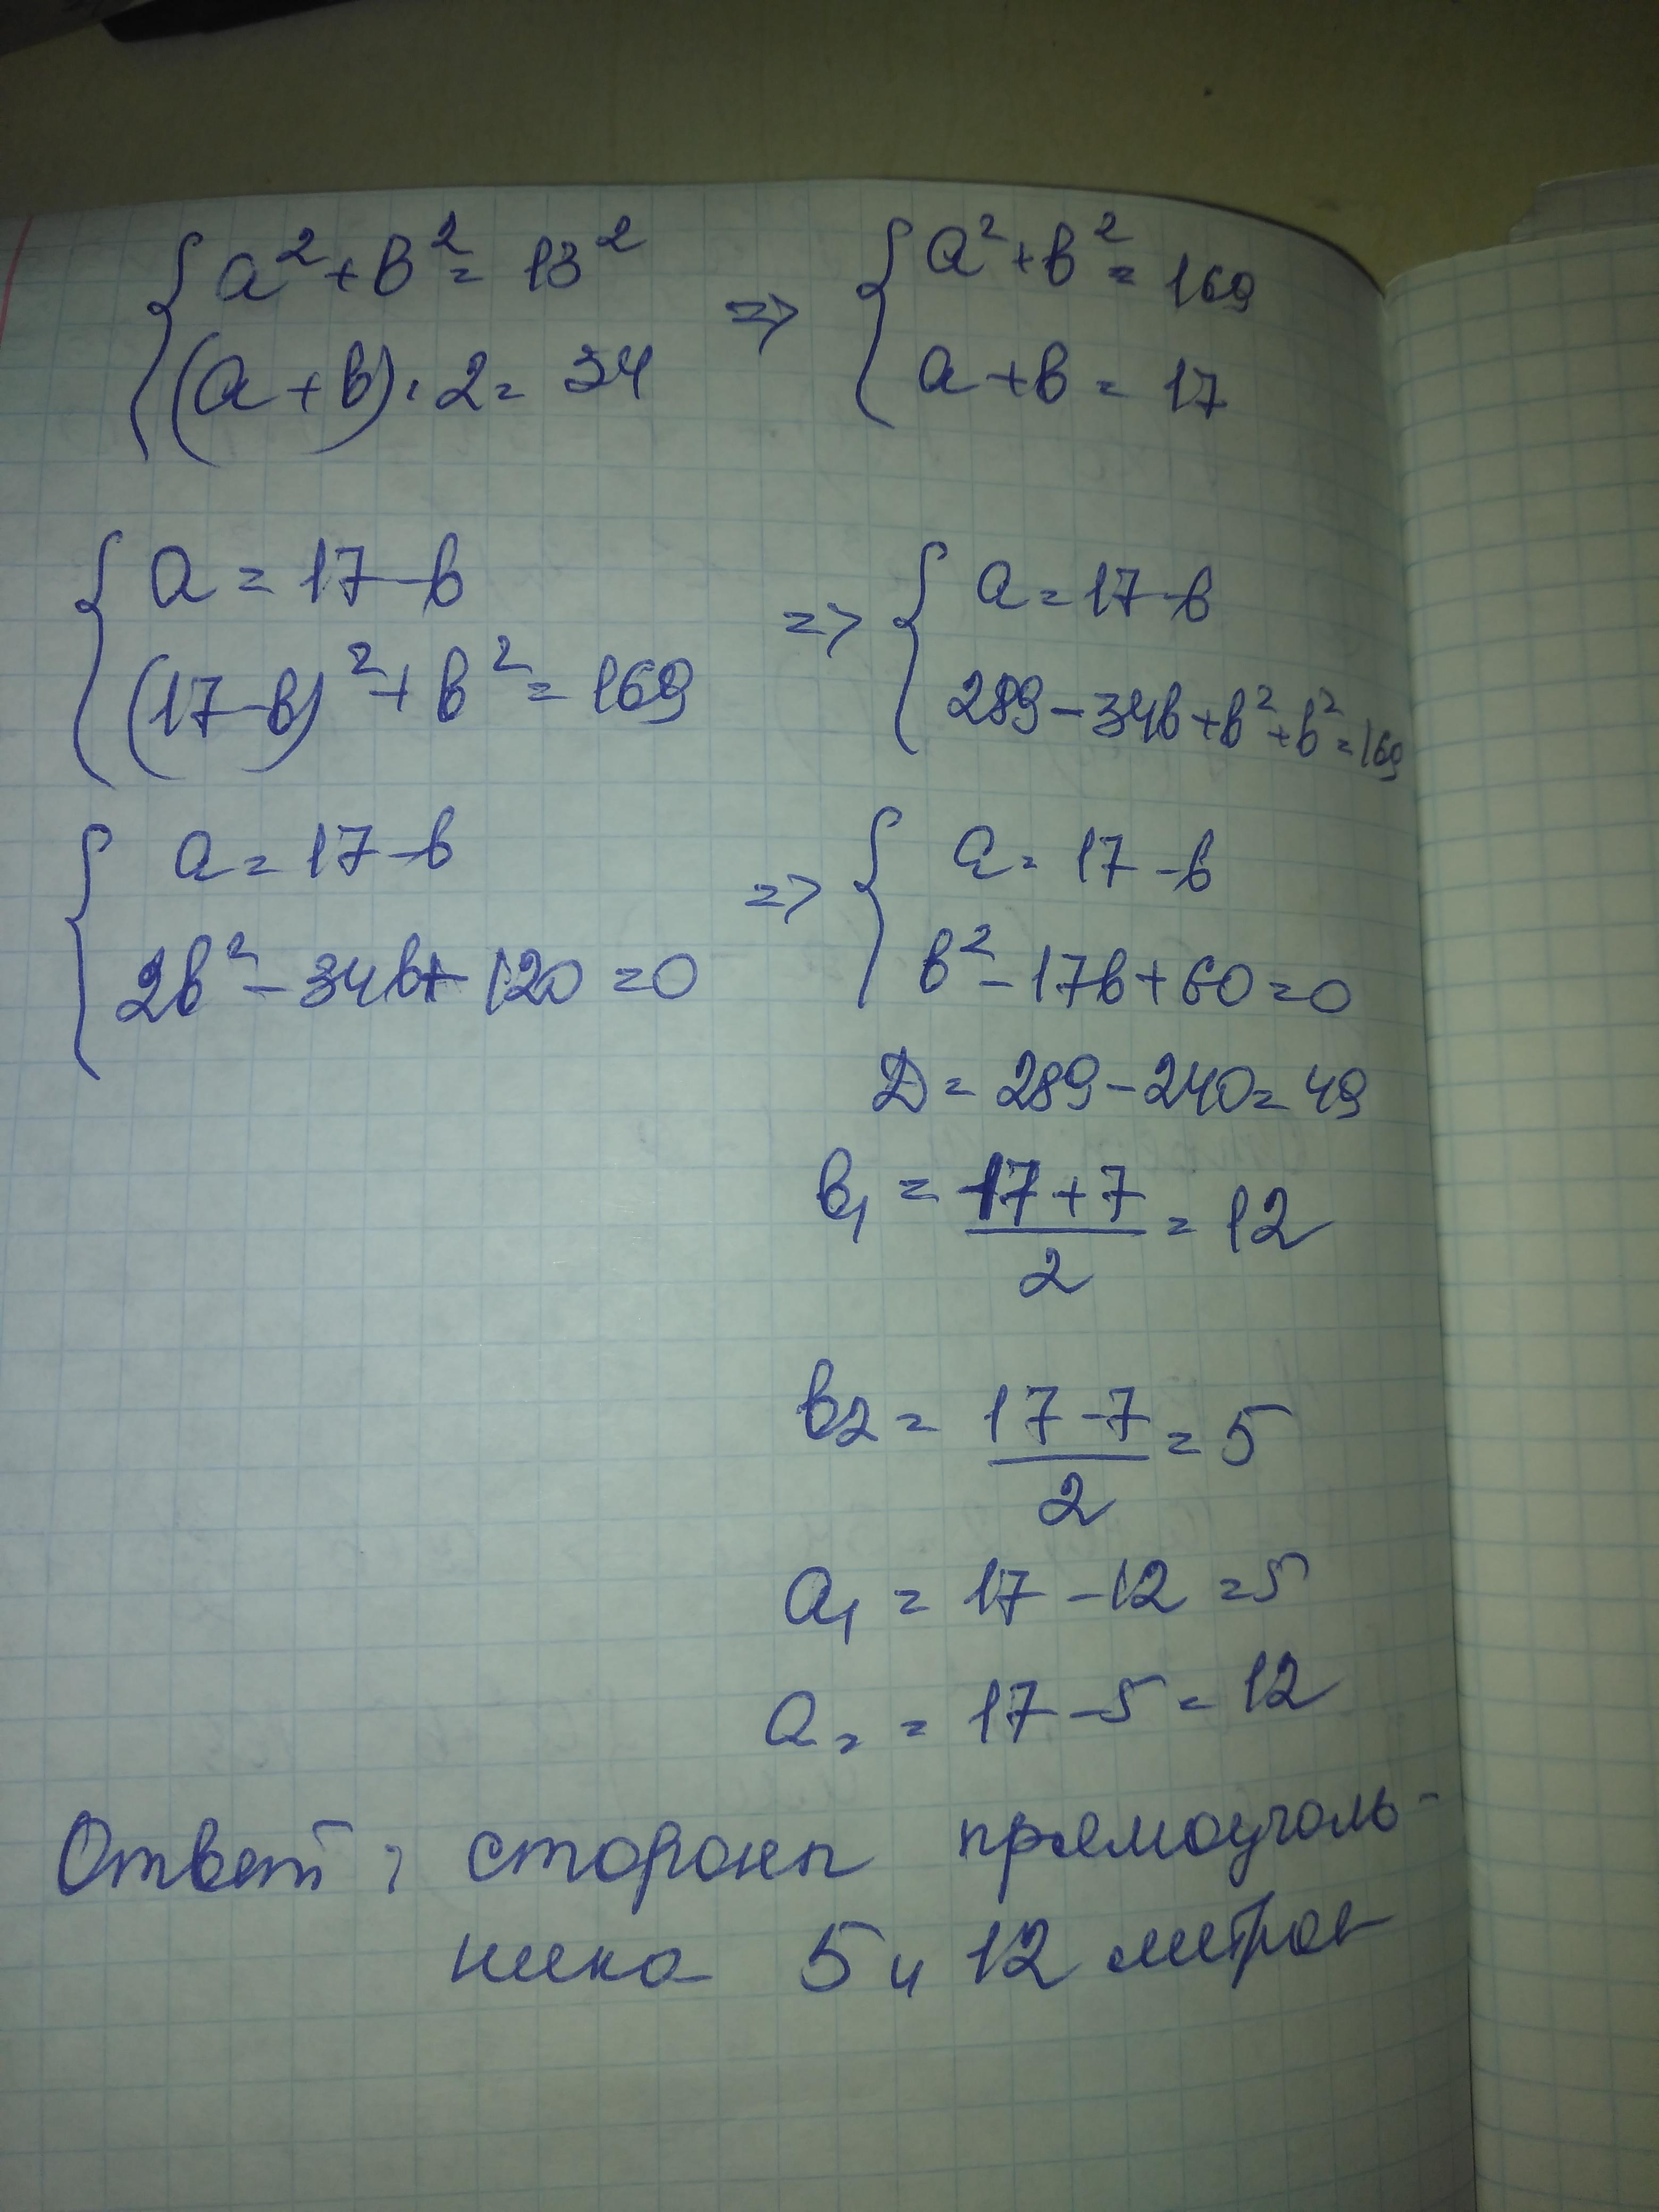 { a² + b² = 13² => { a² + b² = 169
(a + b) · 2 = 34 a + b = 17
{ a = 17 - b => { a = 17 - b
(17 - b)² + b² = 169 289 - 34b + b² + b² = 169
{ a = 17 - b => { a = 17 - b
2b² - 34b + 120 = 0 b² - 17b + 60 = 0
D = 289 - 240 = 49
b₁ = (17 + 7)/2 = 12
b₂ = (17 - 7)/2 = 5
a₁ = 17 - 12 = 5
a₂ = 17 - 5 = 12
Ответ: стороны прямоуголь-
ника 5 и 12 метров